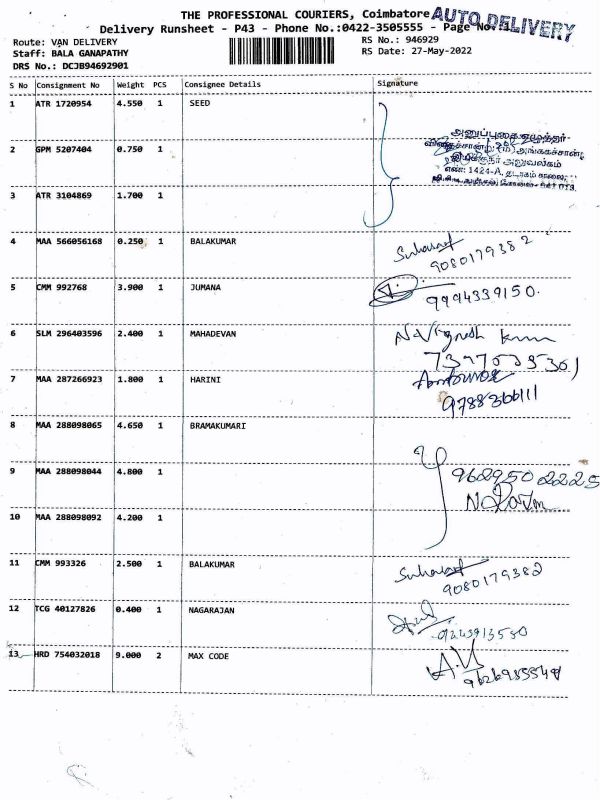 THE PROFESSIONAL COURIERS, Coimbatore
AUTO DELIVERY
Delivery Runsheet - P43 - Phone No.:0422-3505555 - Page No.:1
Route: VAN DELIVERY
RS No.: 946929
Staff: BALA GANAPATHY
RS Date: 27-May-2022
DRS No.: DCJB94692901
S No Consignment No Weight PCS Consignee Details Signature
1 ATR 1720954 4.550 1 SEED
அனுப்புகை எழுத்தர்
2 GPM 5207404 0.750 1
அலுவலகம்
எண்: 1424-A, தடாகம் சாலை,
3 ATR 3104869 1.700 1
4 MAA 566056168 0.250 1 BALAKUMAR
9080179382
5 CMM 992768 3.900 1 JUMANA
9994339150.
6 SLM 296403596 2.400 1 MAHADEVAN
7 MAA 287266923 1.800 1 HARINI
8 MAA 288098065 4.650 1 BRAMAKUMARI
9 MAA 288098044 4.800 1
9629502225
10 MAA 288098092 4.200 1
11 CMM 993326 2.500 1 BALAKUMAR
9080179382
12 TCG 40127826 0.400 1 NAGARAJAN
13 HRD 754032018 9.000 2 MAX CODE